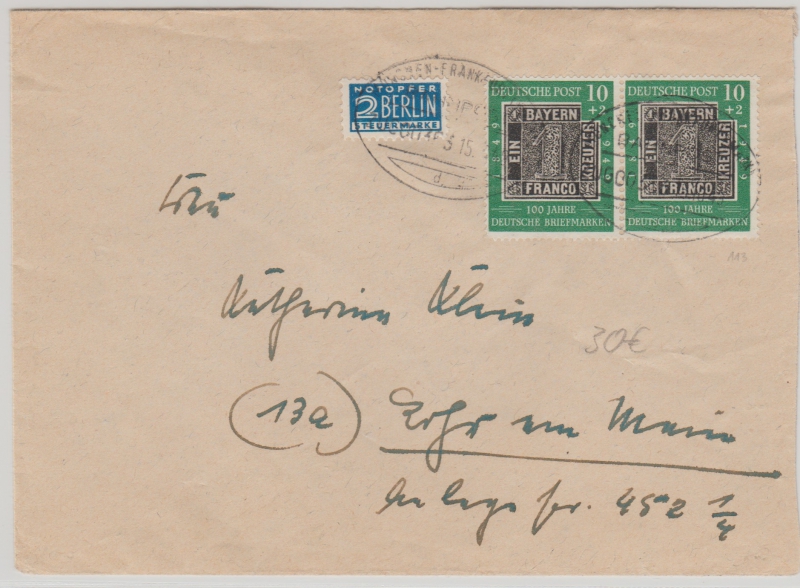 NOTOPFER
2 BERLIN
STEUERMARKE
DEUTSCHE POST 10
+2
BAYERN
EIN 1 KREUZER
FRANCO
1849 1949
100 JAHRE
DEUTSCHE BRIEFMARKEN
DEUTSCHE POST 10
+2
BAYERN
EIN 1 KREUZER
FRANCO
1849 1949
100 JAHRE
DEUTSCHE BRIEFMARKEN
113
Frau
Katharina Klein
30€
(13a) Lohr am Main
Anlage 452 1/4